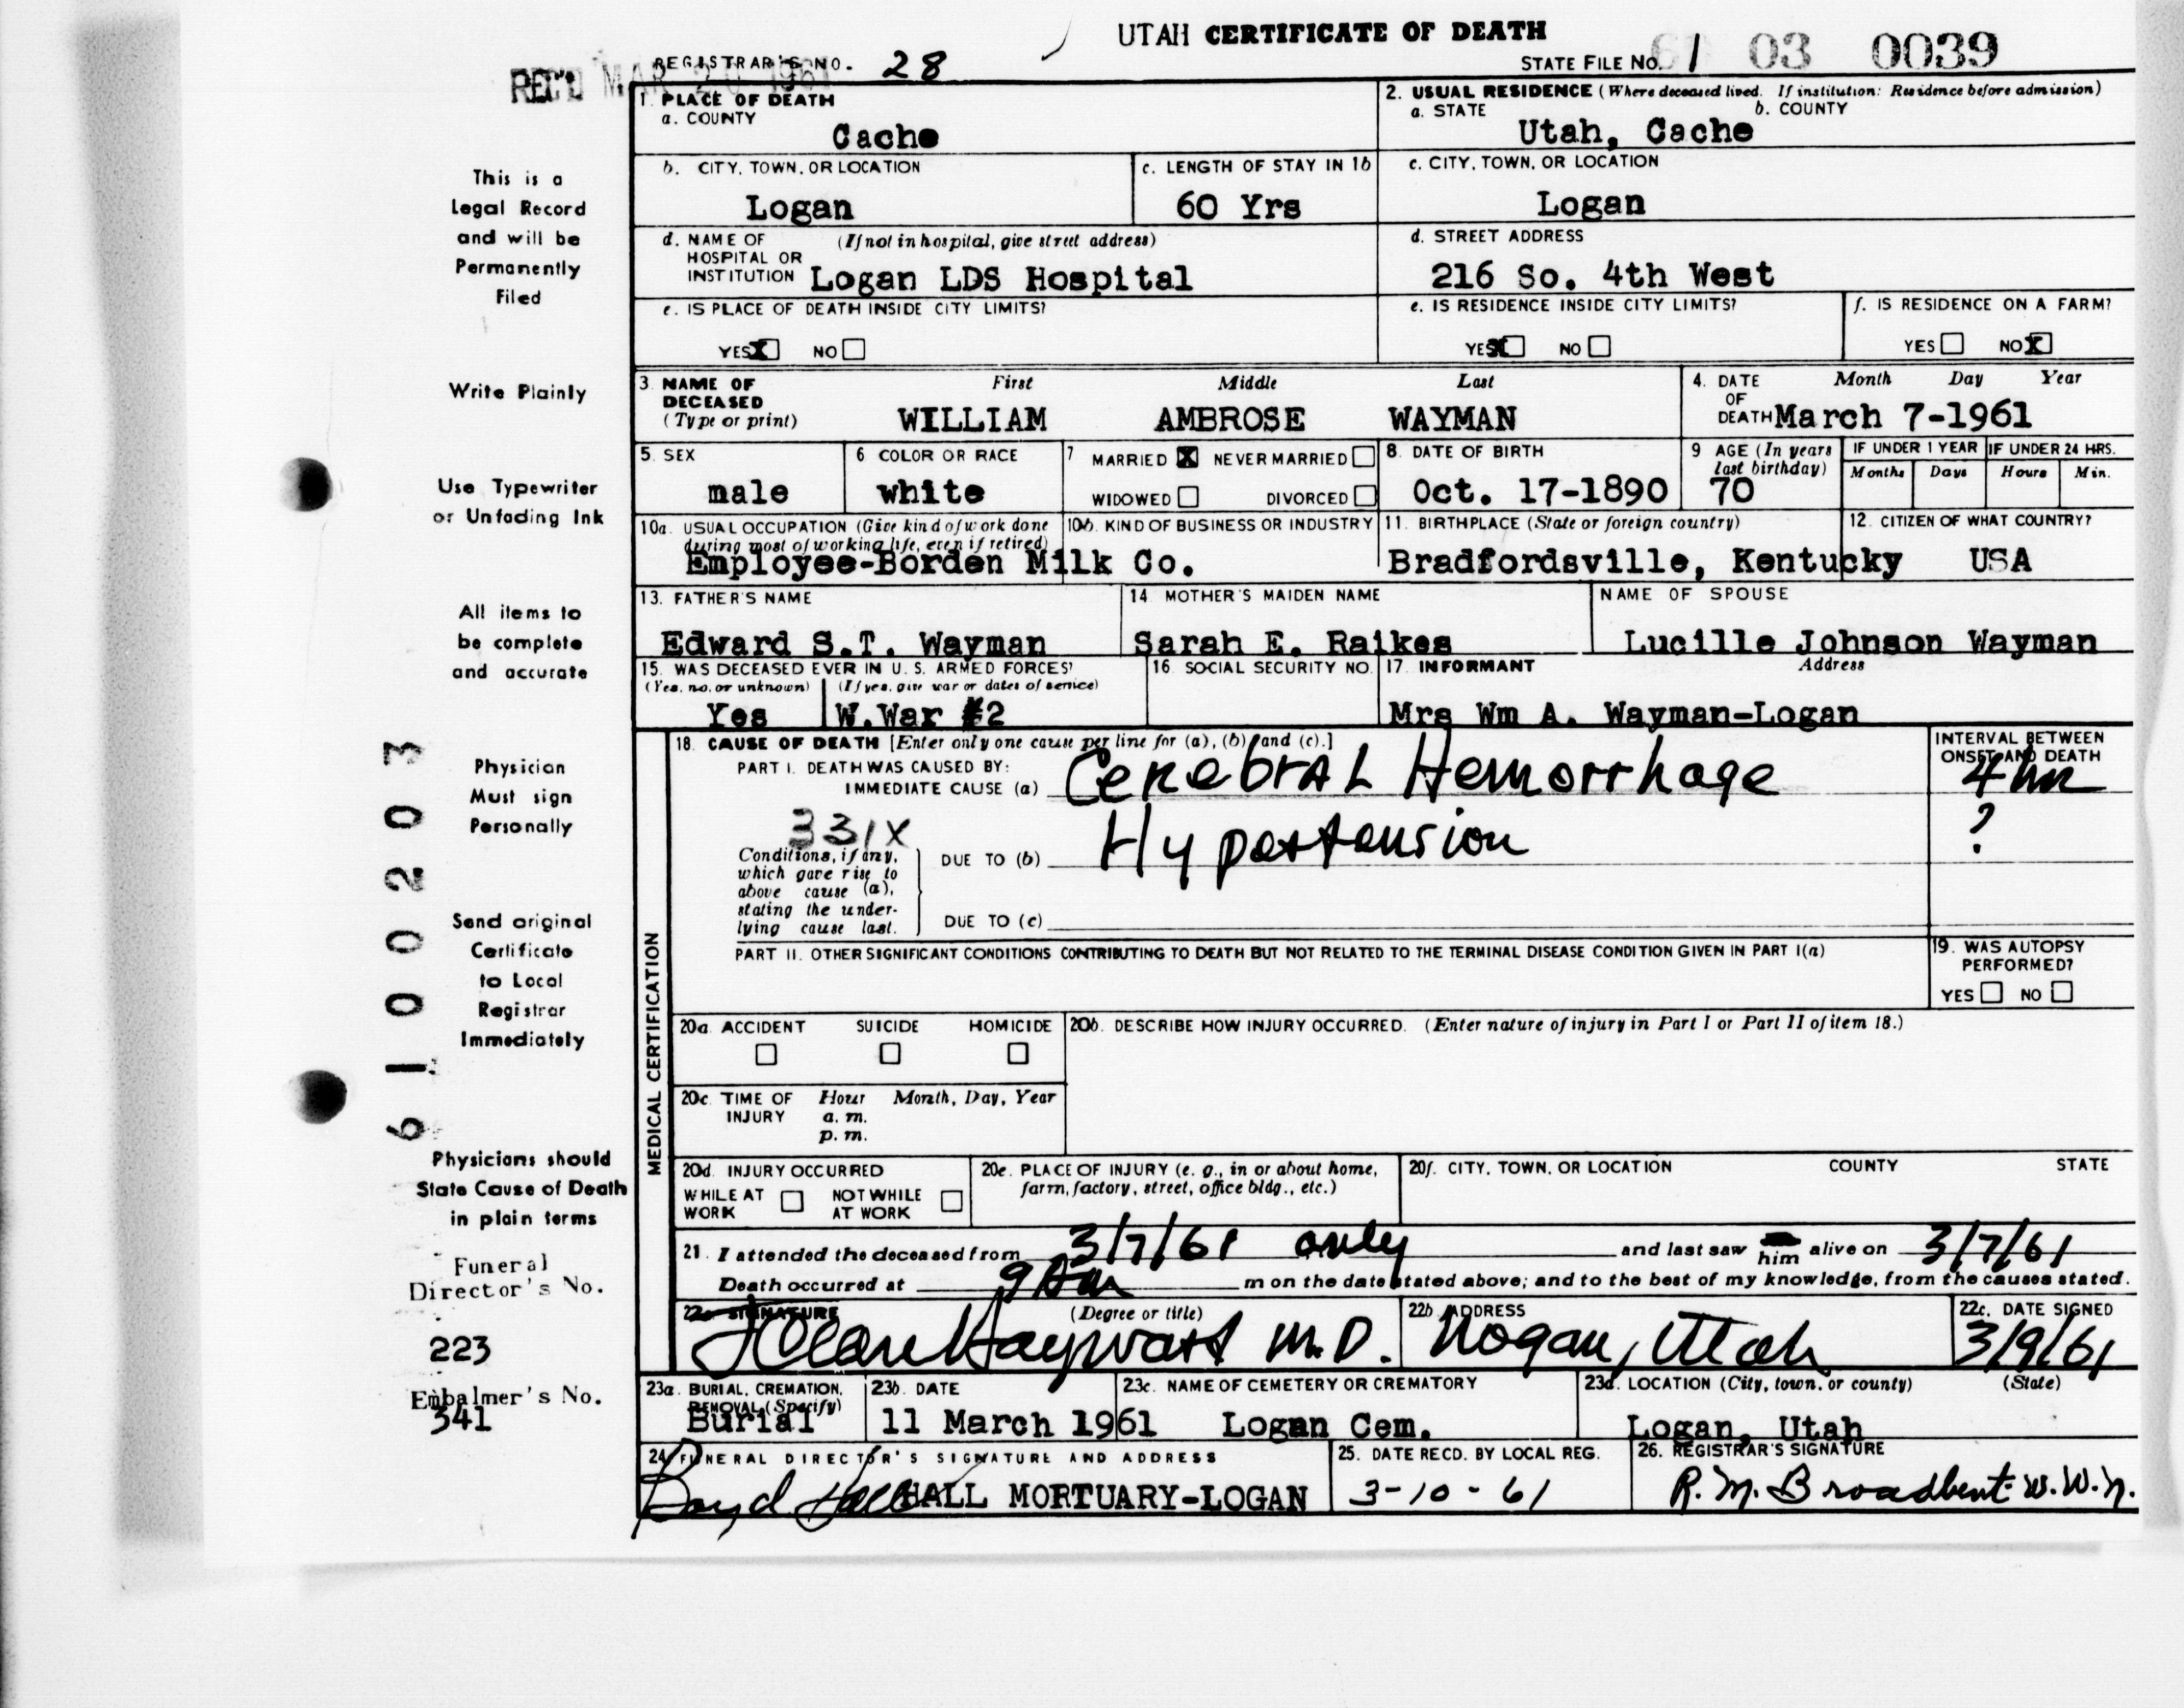 UTAH CERTIFICATE OF DEATH
REC'D MAR 20 1961
REGISTRAR'S NO. 28
STATE FILE NO. 61 03 0039
1. PLACE OF DEATH
a. COUNTY
Cache
2. USUAL RESIDENCE (Where deceased lived. If institution: Residence before admission)
a. STATE b. COUNTY
Utah, Cache
b. CITY, TOWN, OR LOCATION
Logan
c. LENGTH OF STAY IN 1b
60 Yrs
c. CITY, TOWN, OR LOCATION
Logan
d. NAME OF (If not in hospital, give street address)
HOSPITAL OR
INSTITUTION Logan LDS Hospital
d. STREET ADDRESS
216 So. 4th West
e. IS PLACE OF DEATH INSIDE CITY LIMITS?
YES X NO
e. IS RESIDENCE INSIDE CITY LIMITS?
YES X NO
f. IS RESIDENCE ON A FARM?
YES NO X
3. NAME OF
DECEASED
(Type or print)
First Middle Last
WILLIAM AMBROSE WAYMAN
4. DATE Month Day Year
OF
DEATH March 7-1961
5. SEX
male
6 COLOR OR RACE
white
7 MARRIED X NEVER MARRIED
WIDOWED DIVORCED
8. DATE OF BIRTH
Oct. 17-1890
9 AGE (In years
last birthday)
70
IF UNDER 1 YEAR IF UNDER 24 HRS.
Months Days Hours Min.
10a. USUAL OCCUPATION (Give kind of work done
during most of working life, even if retired)
10b. KIND OF BUSINESS OR INDUSTRY
Employee-Borden Milk Co.
11. BIRTHPLACE (State or foreign country)
Bradfordsville, Kentucky
12. CITIZEN OF WHAT COUNTRY?
USA
13. FATHER'S NAME
Edward S.T. Wayman
14 MOTHER'S MAIDEN NAME
Sarah E. Raikes
NAME OF SPOUSE
Lucille Johnson Wayman
15. WAS DECEASED EVER IN U. S. ARMED FORCES?
(Yes, no, or unknown) (If yes, give war or dates of service)
Yes W.War #2
16. SOCIAL SECURITY NO.
17. INFORMANT Address
Mrs Wm A. Wayman-Logan
MEDICAL CERTIFICATION
18. CAUSE OF DEATH [Enter only one cause per line for (a), (b) and (c).]
PART I. DEATH WAS CAUSED BY:
IMMEDIATE CAUSE (a) Cerebral Hemorrhage
INTERVAL BETWEEN
ONSET AND DEATH
4 hr
331X
Conditions, if any,
which gave rise to
above cause (a),
stating the under-
lying cause last.
DUE TO (b) Hypertension
?
DUE TO (c)
PART II. OTHER SIGNIFICANT CONDITIONS CONTRIBUTING TO DEATH BUT NOT RELATED TO THE TERMINAL DISEASE CONDITION GIVEN IN PART I(a)
19. WAS AUTOPSY
PERFORMED?
YES NO
20a. ACCIDENT SUICIDE HOMICIDE
20b. DESCRIBE HOW INJURY OCCURRED. (Enter nature of injury in Part I or Part II of item 18.)
20c. TIME OF Hour Month, Day, Year
INJURY a. m.
p. m.
20d. INJURY OCCURRED
WHILE AT NOT WHILE
WORK AT WORK
20e. PLACE OF INJURY (e. g., in or about home,
farm, factory, street, office bldg., etc.)
20f. CITY, TOWN, OR LOCATION COUNTY STATE
21. I attended the deceased from 3/7/61 only and last saw him alive on 3/7/61
Death occurred at 9 Am m on the date stated above; and to the best of my knowledge, from the causes stated.
22a SIGNATURE (Degree or title)
J Clare Hayward M.D.
22b ADDRESS
Logan, Utah
22c. DATE SIGNED
3/9/61
23a. BURIAL, CREMATION,
REMOVAL (Specify)
Burial
23b. DATE
11 March 1961
23c. NAME OF CEMETERY OR CREMATORY
Logan Cem.
23d. LOCATION (City, town, or county) (State)
Logan, Utah
24 FUNERAL DIRECTOR'S SIGNATURE AND ADDRESS
Boyd Hall HALL MORTUARY-LOGAN
25. DATE RECD. BY LOCAL REG.
3-10-61
26. REGISTRAR'S SIGNATURE
R. M. Broadbent W.W.N.
This is a
Legal Record
and will be
Permanently
Filed
Write Plainly
Use Typewriter
or Unfading Ink
All items to
be complete
and accurate
Physician
Must sign
Personally
Send original
Certificate
to Local
Registrar
Immediately
Physicians should
State Cause of Death
in plain terms
Funeral
Director's No.
223
Embalmer's No.
341
61 00203